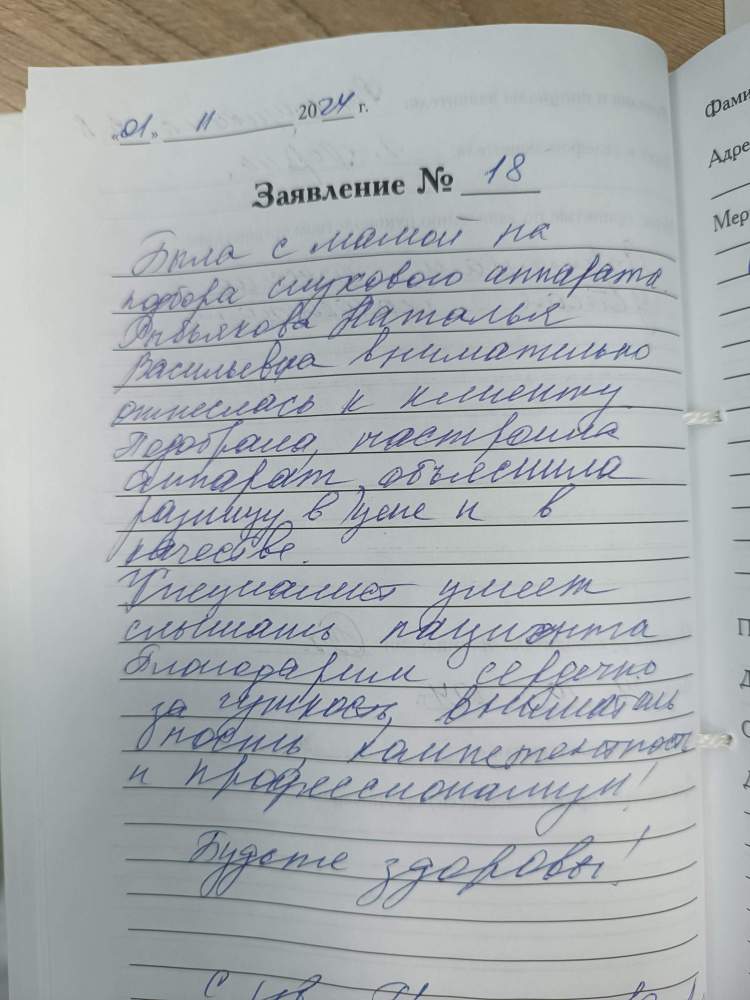 «01» 11 2024 г.
Заявление № 18
Была с мамой на
подбора слухового аппарата.
Наталья
Васильевна внимательно
отнеслась к клиенту.
Подобрала, настроила
аппарат, объяснила
разницу в цене и в
качестве.
Специалист умеет
слышать пациента
Благодарим сердечно
за чуткость, вниматель
ность, компетентность
и профессионализм!
Будьте здоровы!
С ув.
Фами
Адре
Мер